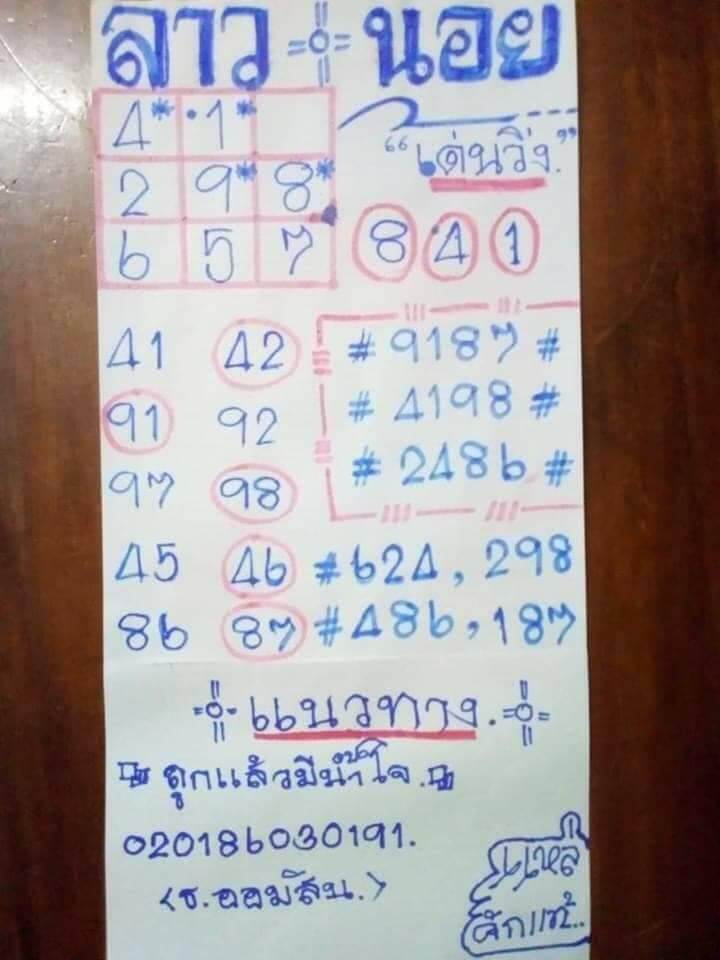 ลาว นอย
4* 1*
2 9* 8*
6 5 7
"เด่นวิ่ง."
8 4 1
41 42
91 92
97 98
45 46
86 87
# 9187 #
# 4198 #
# 2486 #
#624, 298
#486, 187
แนวทาง.
ถูกแล้วมีน้ำใจ.
020186030191.
<ธ.ออมสิน.>